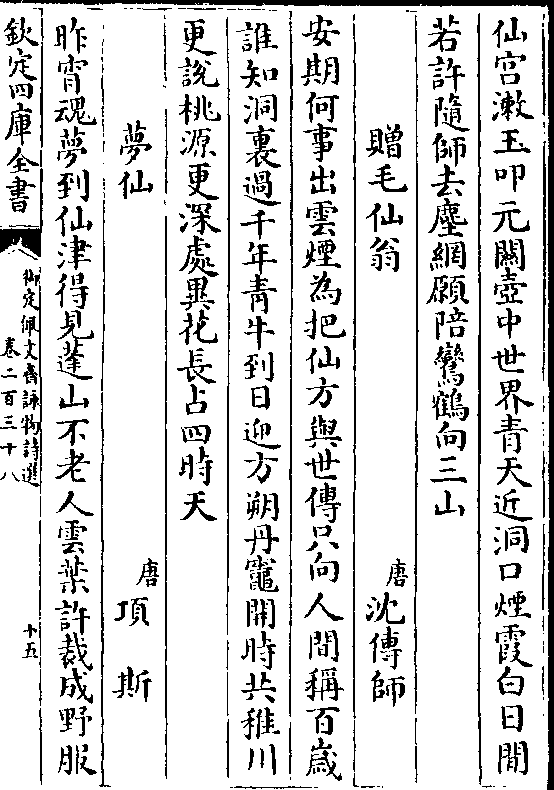 仙宫漱玉叩元關壺中世界青天近洞口煙霞白日閒
若許隨師去塵網願陪鸞鶴向三山
贈毛仙翁
唐
沈傳師
安期何事出雲煙為把仙方與世傳只向人間稱百歳
誰知洞裏過千年青牛到日迎方朔丹竈開時共稚川
更說桃源更深處異花長占四時天
夢仙
唐
項斯
昨宵魂夢到仙津得見蓬山不老人雲葉許裁成野服
欽定四庫全書
御定佩文齋詠物詩選
卷二百三十八
十五